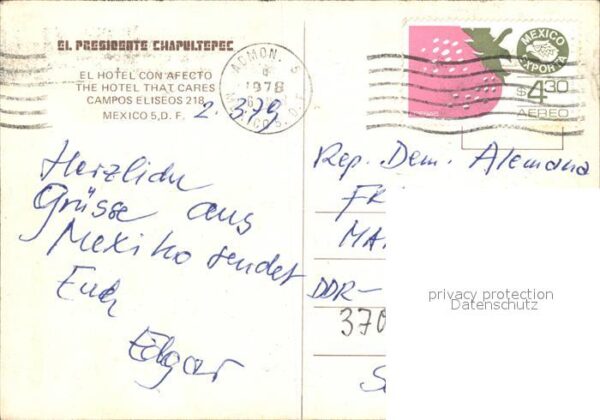 EL PRESIDENTE CHAPULTEPEC
EL HOTEL CON AFECTO
THE HOTEL THAT CARES
CAMPOS ELISEOS 218
MEXICO 5, D. F.
2. 3.79
ADMON. 5
1978
MEXICO 5, D. F.
MEXICO
EXPORTA
$4.30
AEREO
Herzliche
Grüsse aus
Mexiko sendet
Euch
Edgar
Rep. Dem. Alemana
FR
MA
DDR-
370
S
privacy protection
Datenschutz